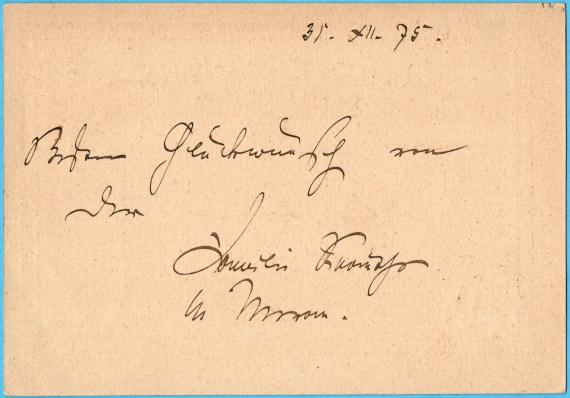 31. XII. 75.
Besten Glückwunsch von
der
Familie
in Meran.